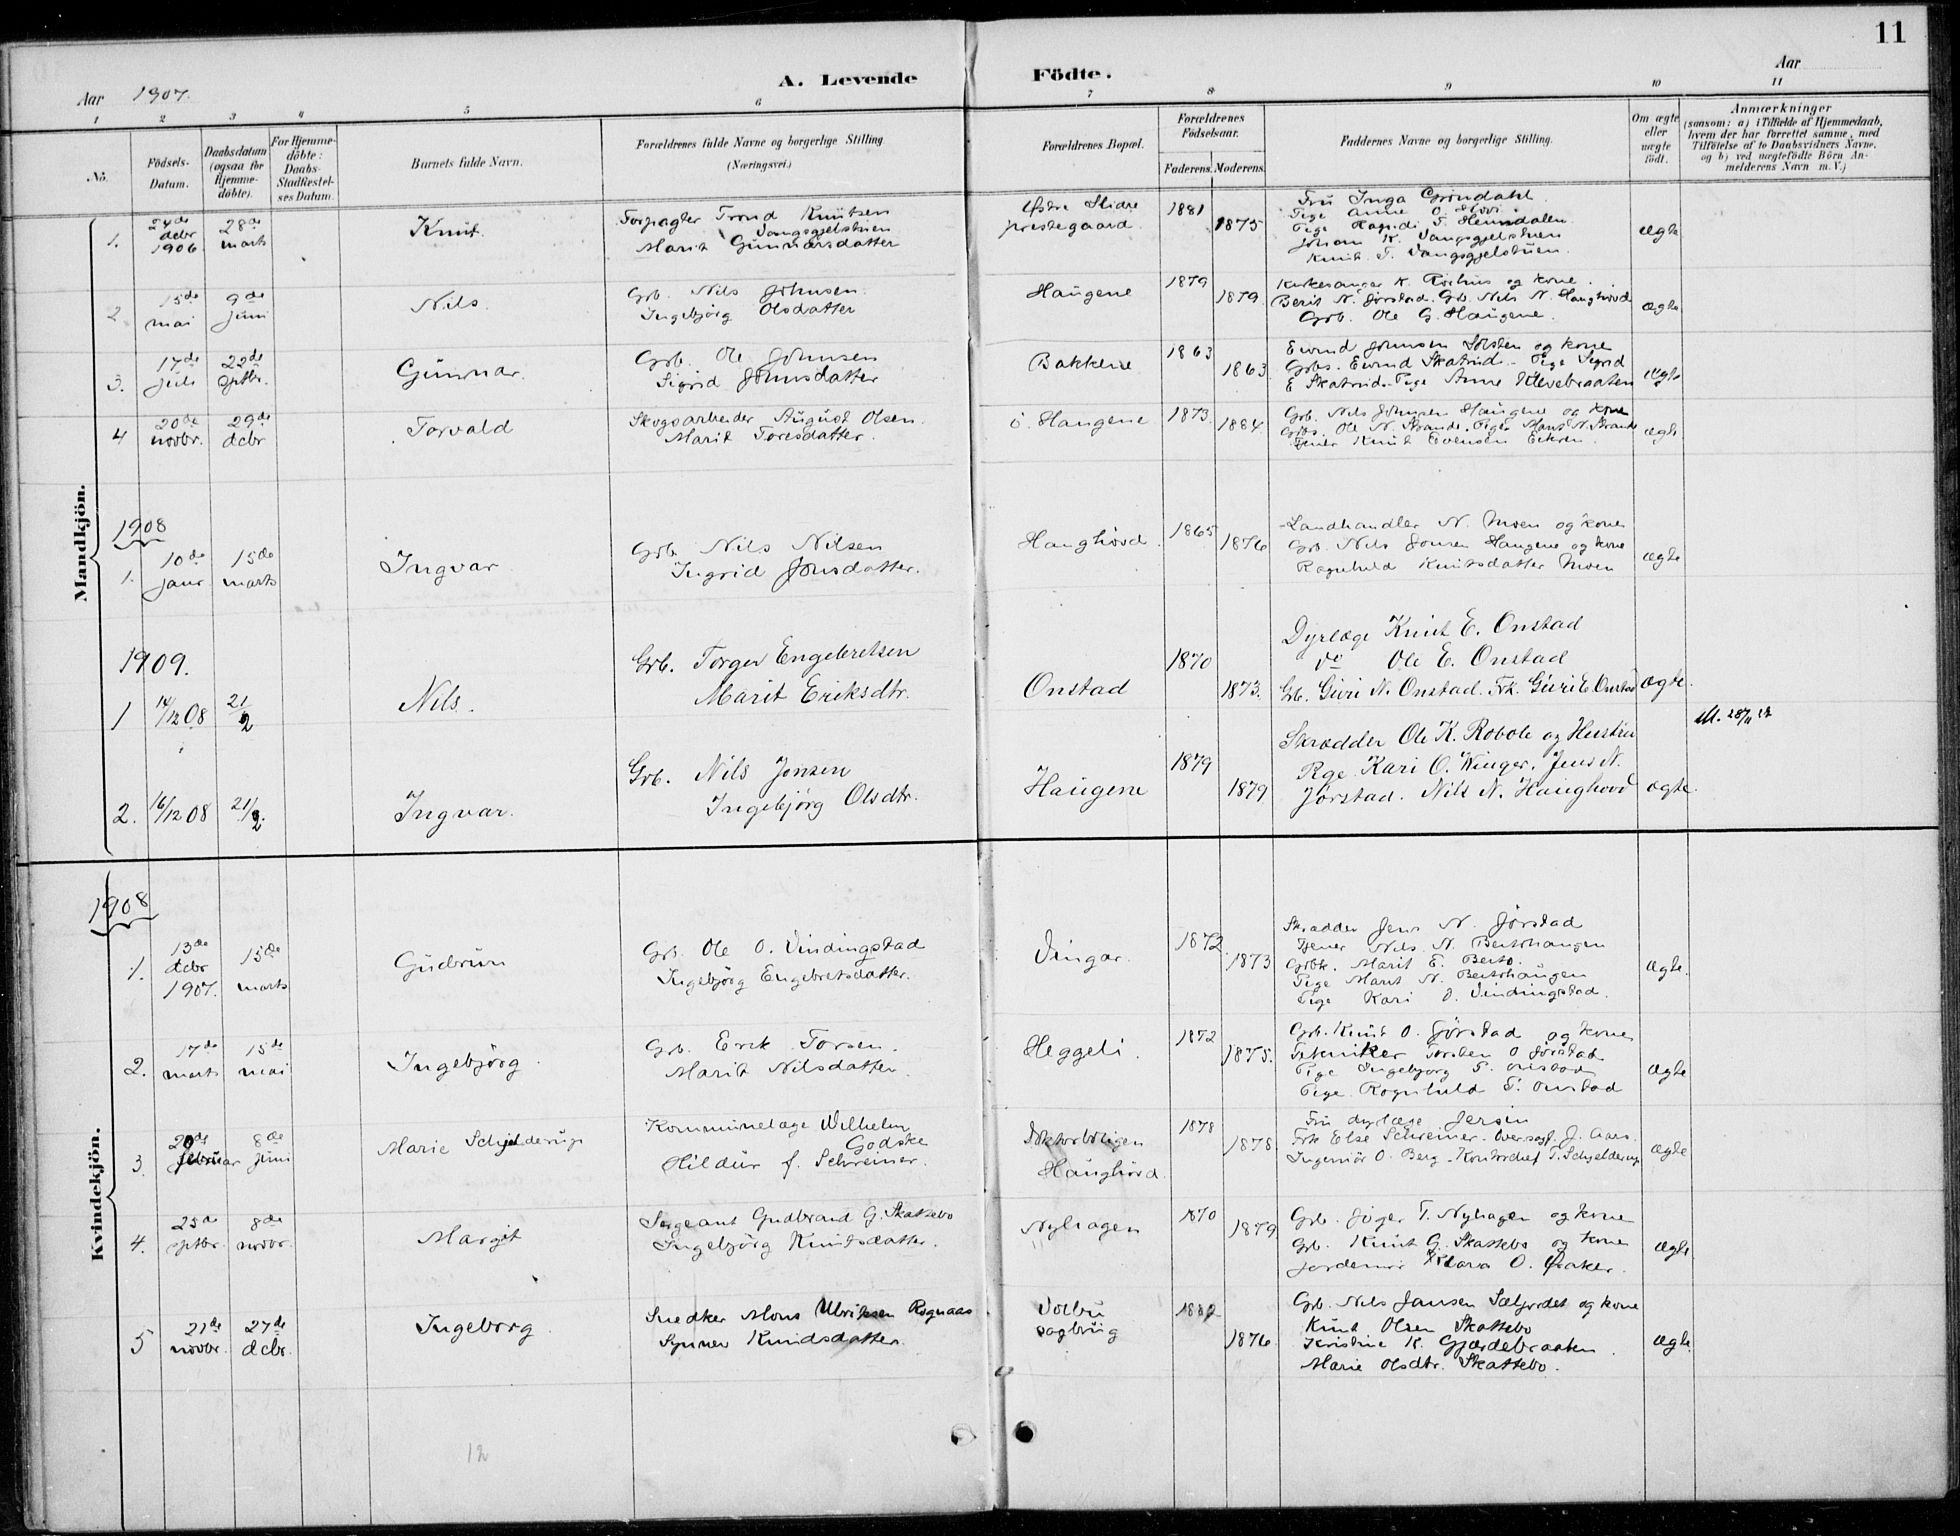 11
A. Levende Födte.
Aar 1907.
Aar
1 2 3 4 5 6 7 8 9 10 11
No.
Födsels-Datum.
Daabsdatum (ogsaa for Hjemme-döbte).
For Hjemme-döbte: Daabs-Stadfæstel-ses Datum.
Barnets fulde Navn.
Forældrenes fulde Navne og borgerlige Stilling (Næringsvei.)
Forældrenes Bopæl.
Forældrenes Födselsaar.
Faderens. Moderens.
Faddernes Navne og borgerlige Stilling.
Om ægte eller uægte födt.
Anmærkninger
(saasom: a) i Tilfælde af Hjemmedaab, hvem der har forrettet samme, med Tilföielse af to Daabsvidners Navne, og b) ved uægtefödte Börn An-melderens Navn m. V.)
Mandkjön.
1. 24de dcbr 1906 28de marts Knut. Forpagter Trond Knutsen Vangsgjelstuen
Marit Gunnarsdatter
Østre Slidre prestegaard 1881 1875
Fru Inga Gröndahl
Pige Anne O. Hovi
Pige Ragndi T. Hemdalen
Johan K. Vangsgjelstuen
Knut T. Vangsgjelstuen.
ægte
2. 15de mai 9de juni Nils. Grb. Nils Johnsen.
Ingebjörg Olsdatter
Haugene 1879 1879
Kirkesanger K. Röihus og kone.
Berit N. Jörstad. Grb. Nils N. Haughövd
Grb. Ole G. Haugene.
ægte
3. 17de juli 22de sptbr. Gunnar. Grb. Ole Johnsen
Sigrid Johnsdatter
Bakkene 1863 1863
Eivind Johnsen Lolsten og kone
Grbs. Eivind Skatrud - Pige Sigrid
E Skatrud. Pige Anne Klevebraaten
ægte
4 20de novbr. 29de dcbr Torvald Skogsarbeider August Olsen.
Marit Toresdatter.
ö. Haugene 1873 1884
Grb. Nils Johnsen Haugene og kone
Grbs. Ole N. Strande. Pige Mari N. Strande
Tjener Knut Evensen Eckren.
ægte
1908
1. 10de janr 15de marts Ingvar Grb Nils Nilsen
Ingrid Jonsdatter.
Haughövd. 1865 1876
Landhandler N. Moen og kone
Grb. Nils Jonsen Haugene og kone
Ragnhild Knutsdatter Moen
ægte
1909.
1 14/12 08 21/2 Nils. Grb. Torger Engebretsen
Marit Eriksdtr.
Onstad 1870 1873.
Dyrlæge Knut E. Onstad
do Ole E. Onstad
Grb. Guri N. Onstad. Frk. Guri E. Onstad
ægte.
2. 16/12 08 21/2. Ingvar. Grb. Nils Jonsen
Ingebjørg Olsdtr.
Haugene 1879 1879
Skrædder Ole K. Robole og Hustru
Pge. Kari O. Winger. Jens N.
Jørstad. Nils N. Haughövd
ægte.
Kvindekjön.
1908
1. 13de dcbr 1907. 15de marts Gudrun Grb. Ole O. Vindingstad
Ingebjörg Engebretsdatter.
Vingar. 1872 1873
Skrædder Jens N. Jörstad
Tjener Nils N. Bertshaugen
Grbk. Marit E. Berto.
Pige Marit N. Bertshaugen
Pige Kari O. Vindingstad.
ægte.
2. 17de marts 15de mai Ingebjörg Grb. Erik Torsen.
Marit Nilsdatter.
Heggeli. 1872 1875.
Grb. Knut O. Jörstad og kone
Tekniker Torsten O Jörstad
Pige Ingebjörg T. Onstad
Pige Ragnhild T. Onstad
ægte
3. 20de februar 8de juni Marie Schjelderup Kommunelæge Wilhelm Godske
Hildur f. Schreiner.
Doktorboligen Haughövd. 1878 1878
Fru dyrlæge Jersin
Frk Else Schreiner. Oversagf. J. Aars.
Ingeniör O. Berg - Kontorchef T. Schjelderup
ægte
4. 25de sptbr. 8de novbr. Margit Sergeant Gudbrand G. Skattebo
Ingebjörg Knutsdatter.
Nyhagen 1870 1879
Grb. Jöger T. Nyhagen og kone
Grb. Knut G. Skattebo og kone
jordemor Klara O. Öraker.
ægte
5 21de novbr. 27de dcbr. Ingeborg Snedker Mons Ulriksen Rognaas
Synnev Knudsdatter.
Volbu sagbrug 1876
Grb. Nils Jansen Sælfjordet og kone
Knut Olsen Skattebo
Kristine K. Gjærdebraaten.
Marie Olsdtr. Skattebo.
ægte.
12